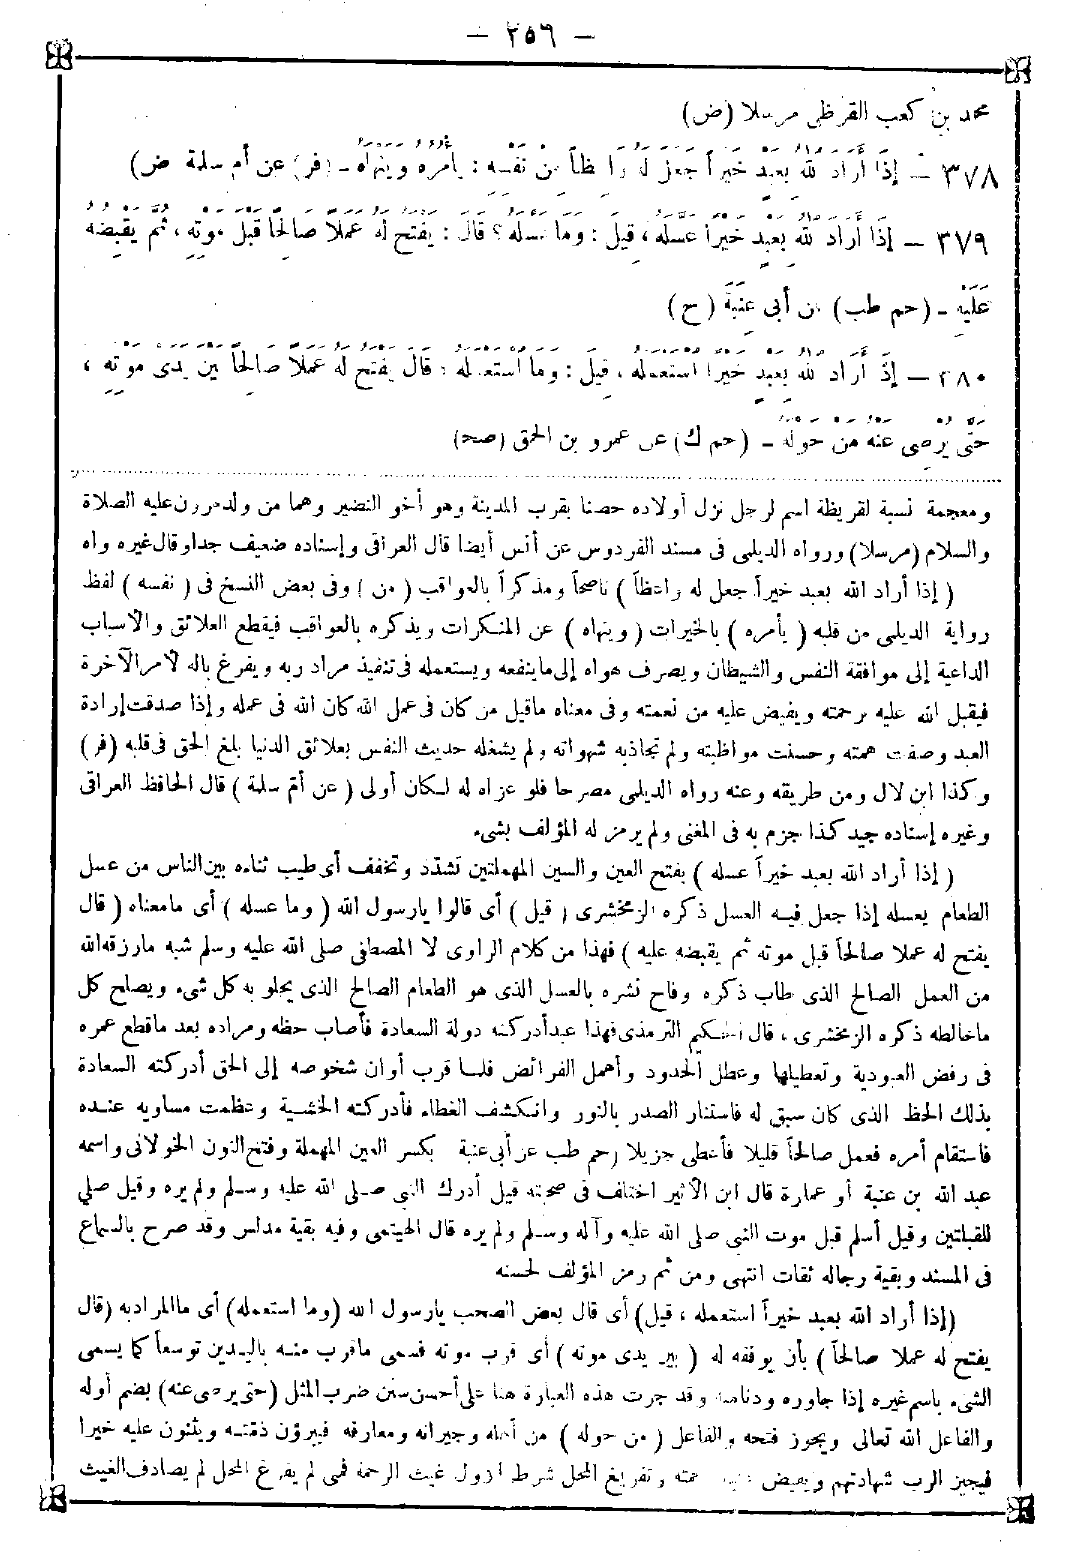 - ٢٥٦ -
محمد بن كعب القرظى مرسلا (ض)
٣٧٨ - إِذَا أَرَادَ اللهُ بِعَبْدٍ خَيْراً جَعَلَ لَهُ وَاعِظاً مِنْ نَفْسِهِ : يَأْمُرُهُ وَيَنْهَاهُ - (فر) عن أم سلمة (ض)
٣٧٩ - إِذَا أَرَادَ اللهُ بِعَبْدٍ خَيْراً عَسَلَهُ ، قِيلَ : وَمَا عَسَلُهُ ؟ قَالَ : يَفْتَحُ لَهُ عَمَلاً صَالِحًا قَبْلَ مَوْتِهِ ، ثُمَّ يَقْبِضُهُ
عَلَيْهِ - (حم طب) عن أبى عِنَبَةَ (ح)
٣٨٠ - إِذَا أَرَادَ اللهُ بِعَبْدٍ خَيْرًا اسْتَعْمَلَهُ ، قِيلَ : وَمَا اسْتَعْمَلَهُ ؟ قَالَ يَفْتَحُ لَهُ عَمَلاً صَالِحاً بَيْنَ يَدَىْ مَوْتِهِ ،
حَتَّى يُرْضِى عَنْهُ مَنْ حَوْلَهُ - (حم ك) عن عمرو بن الحمق (صح)
ومعجمة نسبة لقريظة اسم لرجل نزل أولاده حصنا بقرب المدينة وهو أخو النضير وهما من ولد هرون عليه الصلاة
والسلام (مرسلا) ورواه الديلمى فى مسند الفردوس عن أنس أيضا قال العراقى وإسناده ضعيف جدا وقال غيره واه
( إذا أراد الله بعبد خيراً جعل له واعظاً ) ناصحاً ومذكراً بالعواقب ( من ) وفى بعض النسخ فى ( نفسه ) لفظ
رواية الديلمى من قلبه ( يأمره ) بالخيرات ( وينهاه ) عن المنكرات ويذكره بالعواقب فيقطع العلائق والأسباب
الداعية إلى موافقة النفس والشيطان ويصرف هواه إلى ما ينفعه ويستعمله فى تنفيذ مراد ربه ويفرغ باله لأمر الآخرة
فيقبل الله عليه برحمته ويفيض عليه من نعمته وفى معناه ما قيل من كان فى عمل الله كان الله فى عمله وإذا صدقت إرادة
العبد وصفت همته وحسنت مواظبته ولم تجاذبه شهواته ولم يشغله حديث النفس بعلائق الدنيا بلغ الحق فى قلبه (فر)
وكذا ابن لال ومن طريقه وعنه رواه الديلمى مصرحا فلو عزاه له لكان أولى ( عن أم سلمة ) قال الحافظ العراقى
وغيره إسناده جيد كذا جزم به فى المغنى ولم يرمز له المؤلف بشىء
( إذا أراد الله بعبد خيراً عسله ) بفتح العين والسين المهملتين تشدد وتخفف أى طيب ثناءه بين الناس من عسل
الطعام يعسله إذا جعل فيه العسل ذكره الزمخشرى ( قيل ) أى قالوا يارسول الله ( وما عسله ) أى ما معناه ( قال
يفتح له عملا صالحاً قبل موته ثم يقبضه عليه ) فهذا من كلام الراوى لا المصطفى صلى الله عليه وسلم شبه ما رزقه الله
من العمل الصالح الذى طاب ذكره وفاح نشره بالعسل الذى هو الطعام الصالح الذى يحلو به كل شىء ويصلح كل
ماخالطه ذكره الزمخشرى ، قال الحكيم الترمذى فهذا عبد أدركته دولة السعادة فأصاب حظه ومراده بعد ما قطع عمره
فى رفض العبودية وتعطيلها وعطل الحدود وأهمل الفرائض فلما قرب أوان شخوصه إلى الحق أدركته السعادة
بذلك الحظ الذى كان سبق له فاستنار الصدر بالنور وانكشف الغطاء فأدركته الخشية وعظمت مساويه عنده
فاستقام أمره فعمل صالحاً قليلا فأعطى جزيلا (حم طب عن أبى عنبة بكسر العين المهملة وفتح النون الخولانى واسمه
عبد الله بن عنبة أو عمارة قال ابن الأثير اختلف فى صحبته قيل أدرك النبى صلى الله عليه وسلم ولم يره وقيل صلى
للقبلتين وقيل أسلم قبل موت النبى صلى الله عليه وآله وسلم ولم يره قال الهيتمى وفيه بقية مدلس وقد صرح بالسماع
فى المسند وبقية رجاله ثقات انتهى ومن ثم رمز المؤلف لحسنه
(إذا أراد الله بعبد خيراً استعمله ، قيل) أى قال بعض الصحب يارسول الله (وما استعمله) أى ما المراد به (قال
يفتح له عملا صالحاً ) بأن يوفقه له ( بين يدى موته ) أى قرب موته فسمى ماقرب منه باليدين توسعاً كما يسمى
الشىء باسم غيره إذا جاوره ودنا منه وقد جرت هذه العبارة هنا على أحسن سنن ضرب المثل (حتى يرضى عنه) بضم أوله
والفاعل الله تعالى ويجوز فتحه والفاعل ( من حوله ) من أهله وجيرانه ومعارفه فيبرؤن ذمته ويثنون عليه خيرا
فيجيز الرب شهادتهم ويفيض عليه رحمته وتفريغ المحل شرط لنزول غيث الرحمة فمن لم يفرغ المحل لم يصادف الغيث